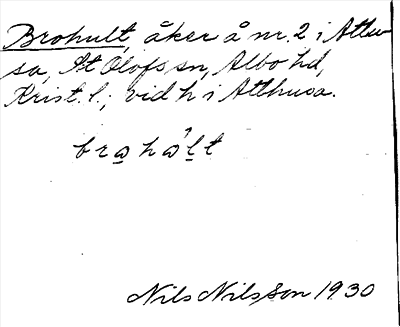 Brohult, åker å nr. 2 i Atthu
sa, St Olofs sn, Albo hd,
Krist. l.; vid h i Atthusa.
bro̲hò̲l̲t
Nils Nilsson 1930